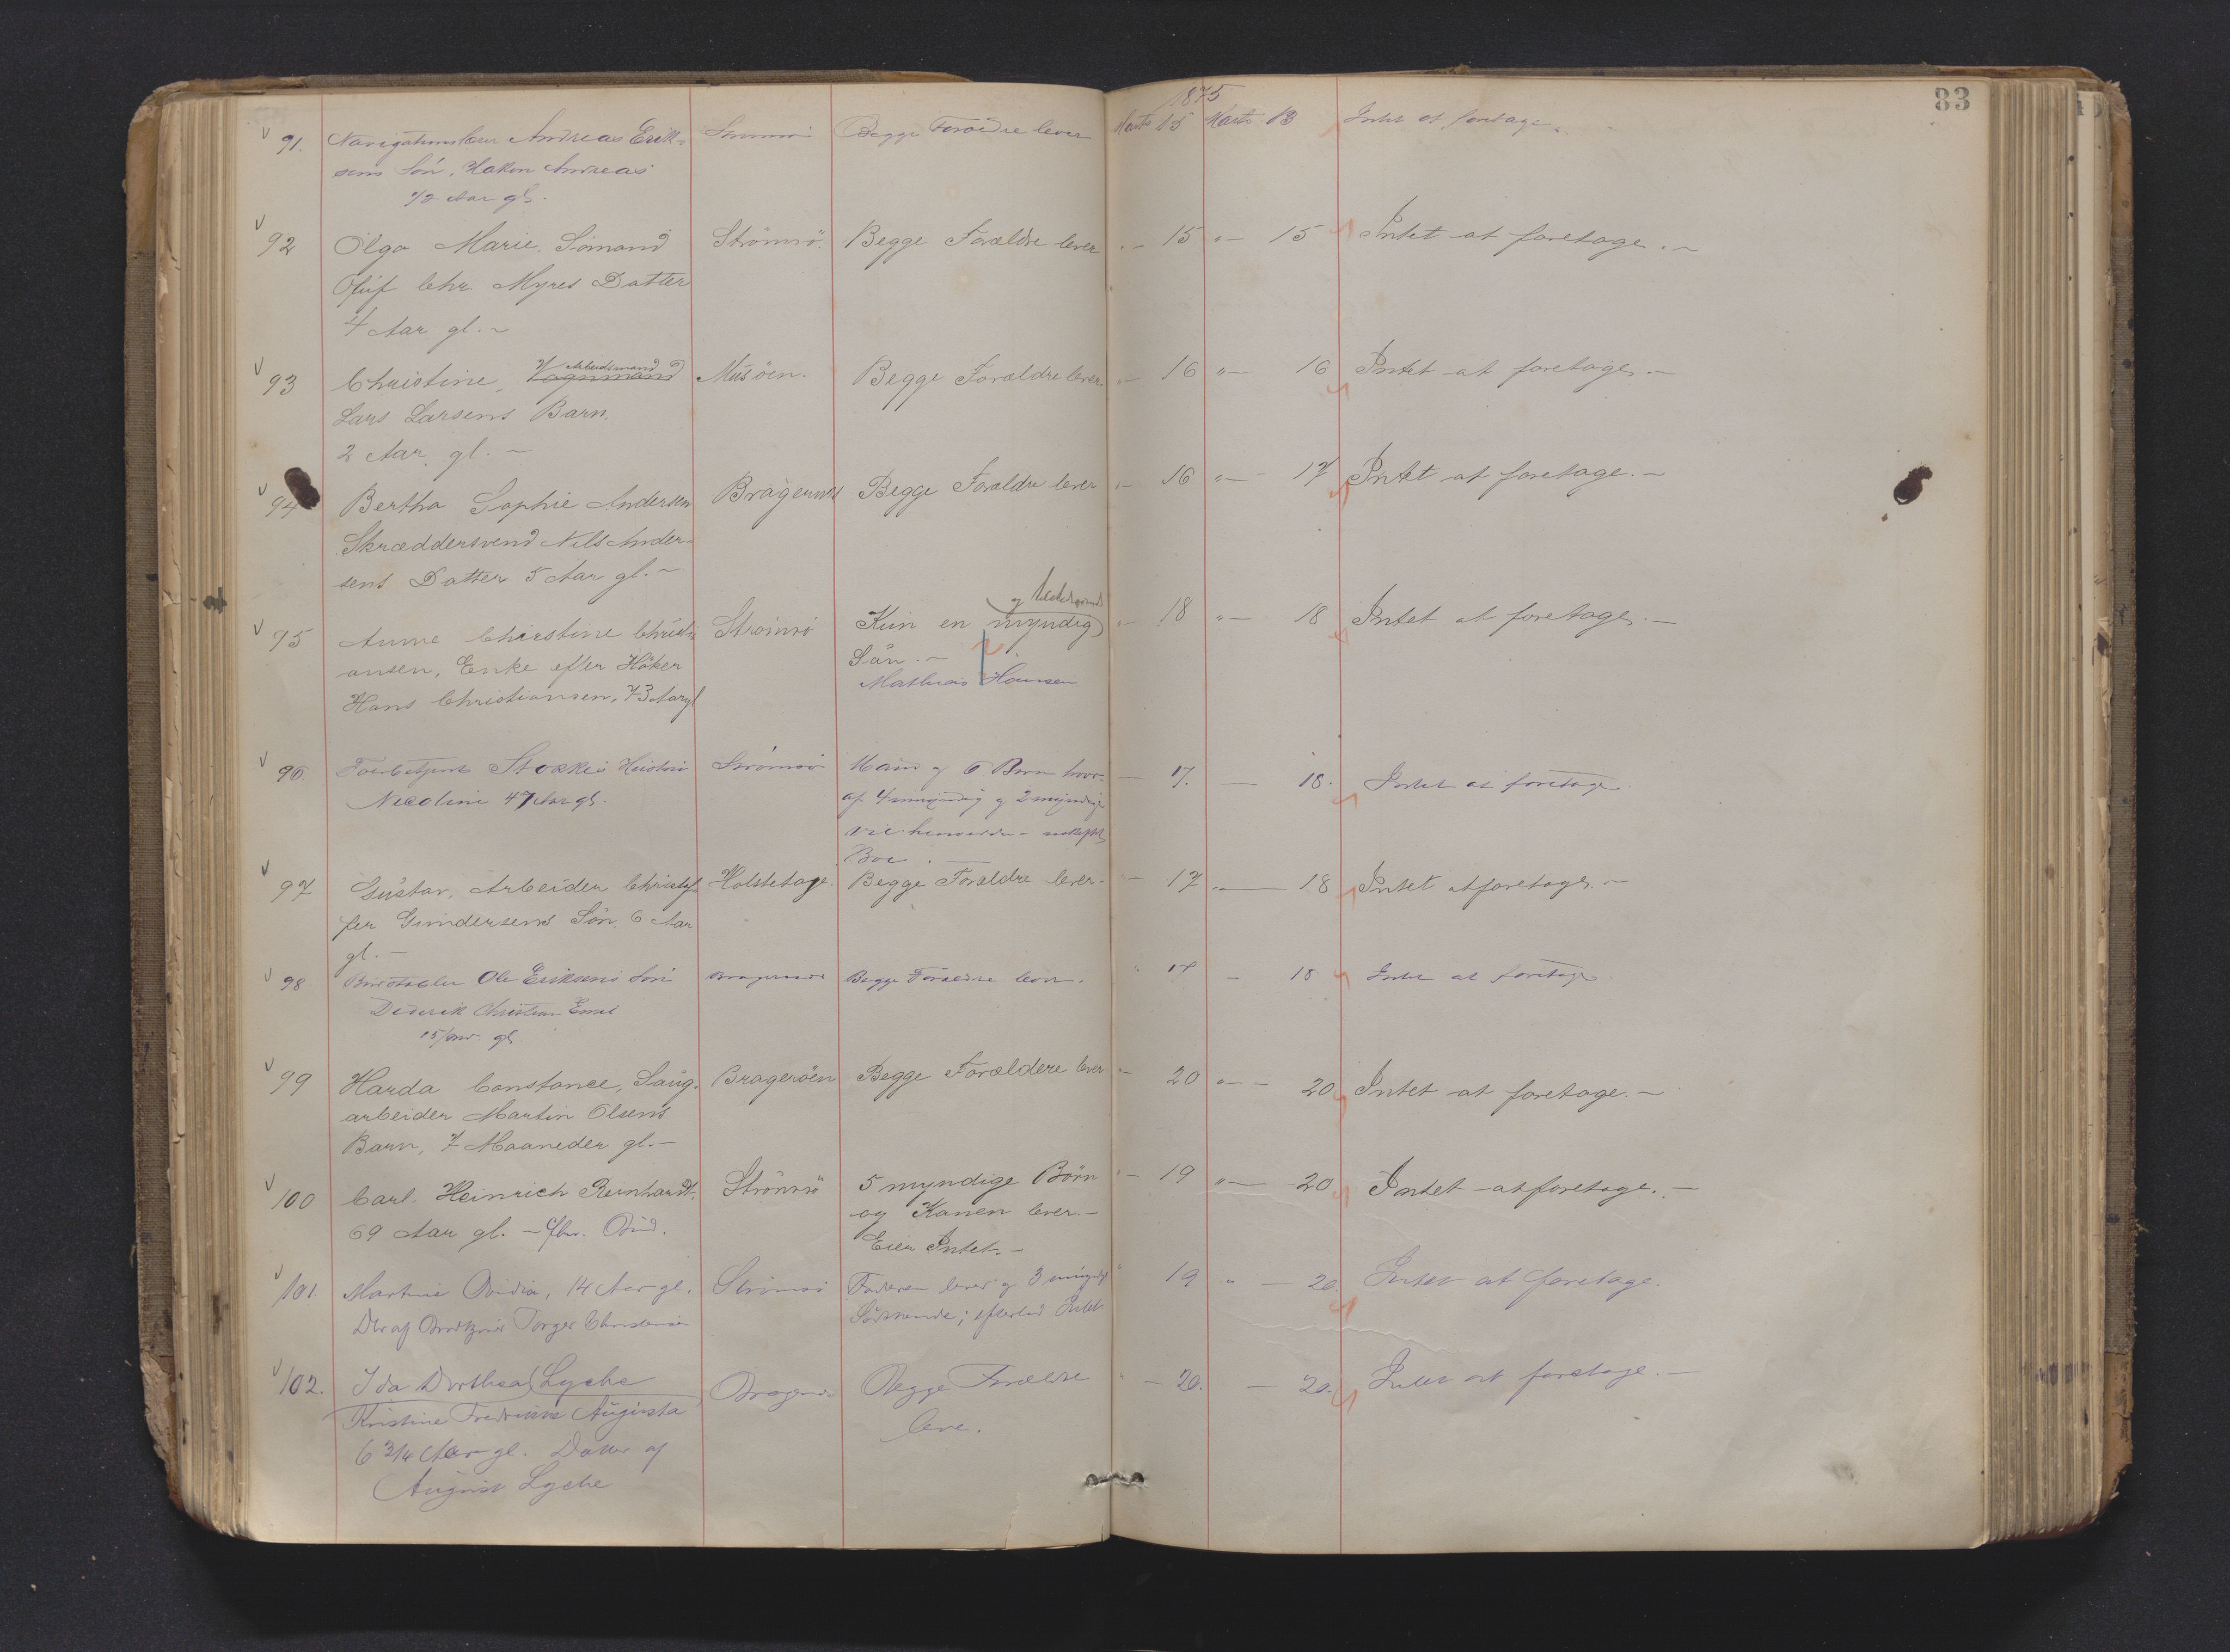 83
1875
91. Navigationslærer Andreas Erik- Strømsø Begge Forældre lever Marts 15 Marts 13 Intet at foretage.
sens Søn, Hakon Andreas
1/2 Aar gl.
92 Olga Marie, Sömand Strömsö. Begge Forældre lever " 15 " 15 Intet at foretage. -
Oluf Chr. Myres Datter
4 Aar gl. -
93 Christine, Arbeidsmand Misöen. Begge Forældre lever. " 16 " 16 Intet at foretage. -
Lars Larsens Barn,
2 Aar gl. -
94 Bertha Sophie Andersen Bragernes Begge Forældre lever " 16 " 17 Intet at foretage. -
Skræddersvend Nils Ander-
sens Datter 5 Aar gl. -
95 Anne Christine Christi- Strömsö Kun en myndig " 18 " 18 Intet at foretage. -
ansen, Enke efter Höker Sön. -
Hans Christiansen, 73 Aar gl Mathias Hansen
96. Stokkes Hustru Strömsö Mand og 6 Børn hvor- - 17. - 18. Intet at foretage.
Nicoline 47 Aar gl. af 4 umyndig og 2 myndige
Boe.
97 Gustav, Arbeider Christof- Holstetage. Begge Forældre lever - - 17 " 18 Intet at foretage. -
fer Gundersens Sön. 6 Aar
gl. -
98 Ole Eriksens Søn Bragernes Begge Forældre lever. " 17 - 18 Intet at foretage
Diderik Christian Emil
gl.
99 Harda Constance, Saug- Bragerøen Begge Forældere lever " 20 " 20 Intet at foretage. -
arbeider Martin Olsens
Barn, 7 Maaneder gl. -
100 Carl Heinrich Reinhardt, Strömsö 5 myndige Börn " 19 " 20 Intet at foretage. -
69 Aar gl. - og Konen lever. -
Eier Intet. -
101. Martine Ovidia, 14 Aar gl. Strömsö Faderen lever og 3 " 19 " 20. Intet at foretage.
Dtr af Torger Christensen Södskende; efterlod Intet
102. Ida Dorthea Lyche Bragernes Begge Forældre " 20. - 20. Intet at foretage. -
Kristine Fredrikke Augusta leve.
6 3/4 Aar gl. Datter af
August Lyche